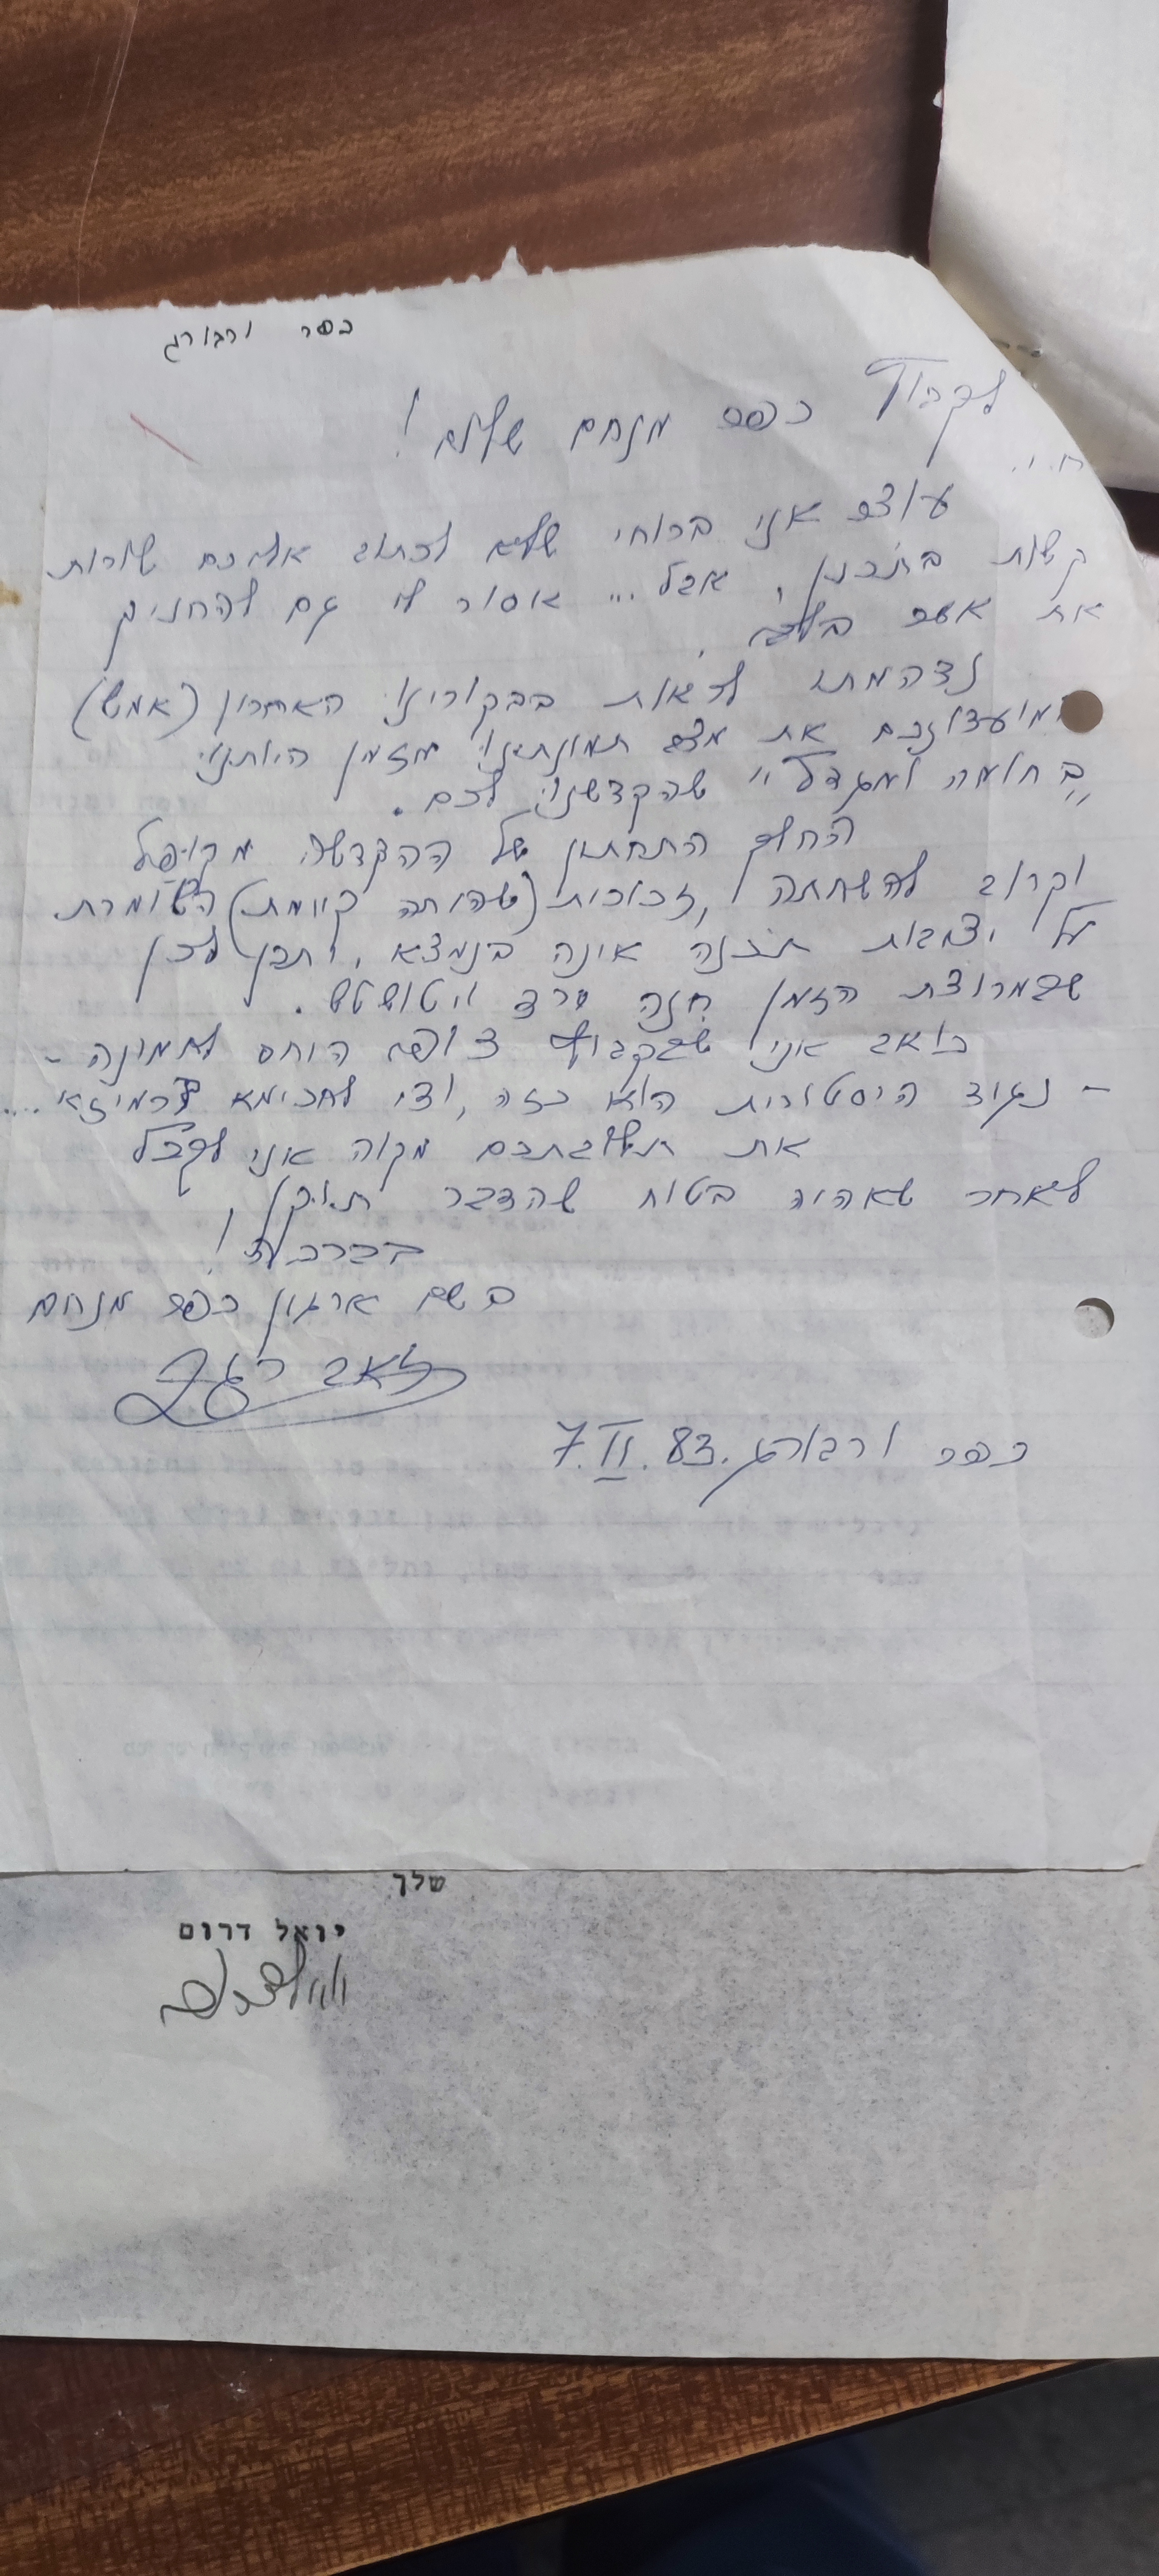 כפר ורבורג
לקבוץ כפר מנחם שלום!
ח.נ.
עוצר אני ברוחי שלא לכתוב אליכם שורות
קשות בתוכנן, אבל... אסור לי גם להחניק
את אשר בלבי.
נדהמתי לראות בבקורינו האחרון (אמש)
במועדונכם את מצב תמונתינו מזמן היותינו
"בחומה ומגדל" שהקדשנו לכם.
החלק התחתון של ההקדשה מקופל
וקרוב להשחתה, זכוכית (שהיתה קיימת) השומרת
על יציבות תוכנה אינה בנמצא, יתכן לכן
שבמרוצת הזמן חנה ירד ויטושטש.
כואב אני שבקבוץ צופה היחס לתמונה -
- נגוד היסטורית הוא כזה, ודי לחכימא ברמיזא....
את תשובתכם מקוה אני לקבל
לאחר שאהיה בטוח שהדבר תוקן.
בברכה!
בשם ארגון כפר מנחם
זאב
כפר ורבורג. 7.II.83
שלך
יואל דרום